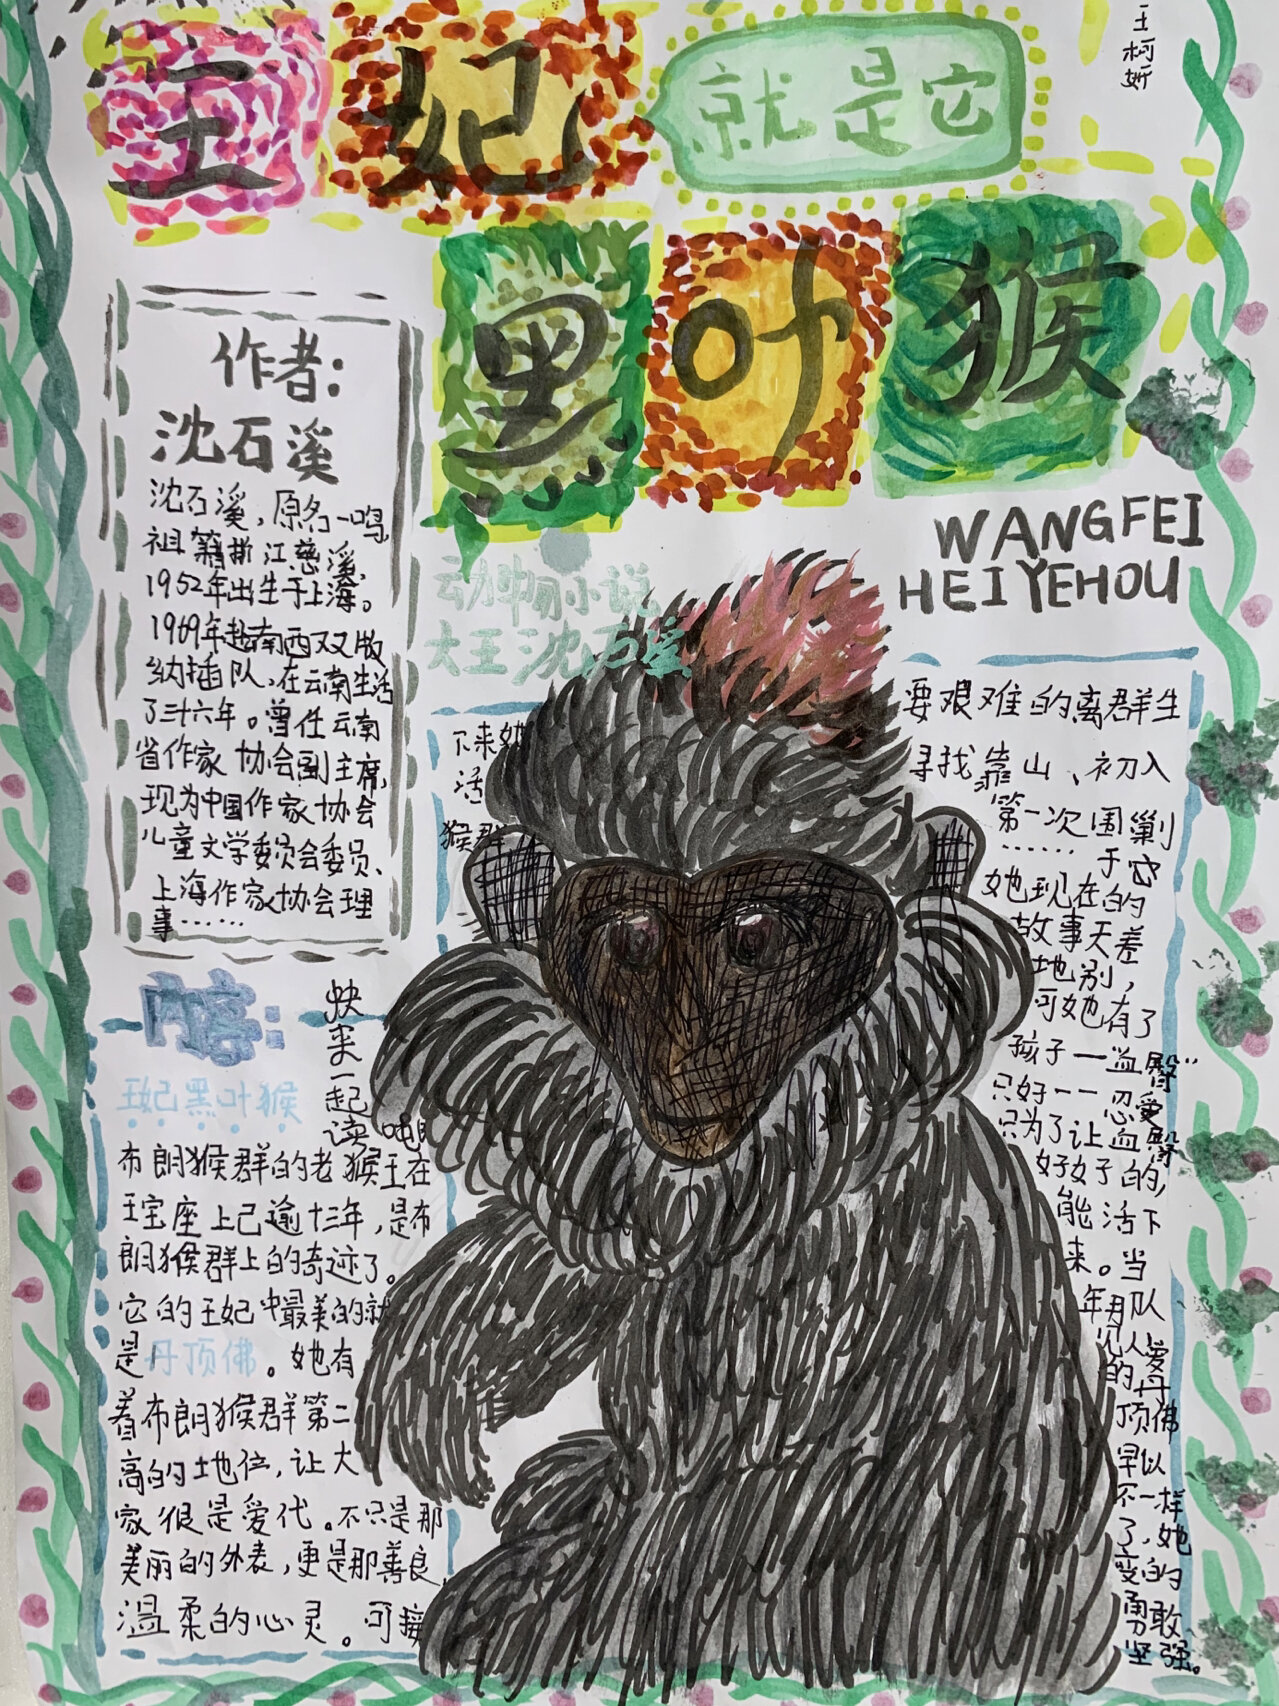 王妃
就是它
王柯妡
黑叶猴
WANGFEI
HEIYEHOU
作者:
沈石溪
沈石溪,原名一鸣,
祖籍浙江慈溪,
1952年出生于上海。
1969年赴南西双版
纳插队,在云南生活
了三十六年。曾任云南
省作家协会副主席,
现为中国作家协会
儿童文学委员会委员、
上海作家协会理
事……
动物小说
大王沈石溪
内容:
快来一起读吧
王妃黑叶猴
布朗猴群的老猴王在
王宝座上已逾十三年,是布
朗猴群上的奇迹了。
它的王妃中最美的就
是丹顶佛。她有
着布朗猴群第二
高的地位,让大
家很是爱代。不只是那
美丽的外表,更是那善良,
温柔的心灵。可接
下来她
要艰难的离群生
活
寻找靠山、初入
猴群
第一次围剿
……于它
她现在的
故事天差
地别,
可她有了
孩子一血臀
只好一一忍爱
只为了让血臀
好好子的,
能活下
来。当
年用队
见人爱
的丹
顶佛
早以
不一样
了,她
变的
勇敢
坚强。